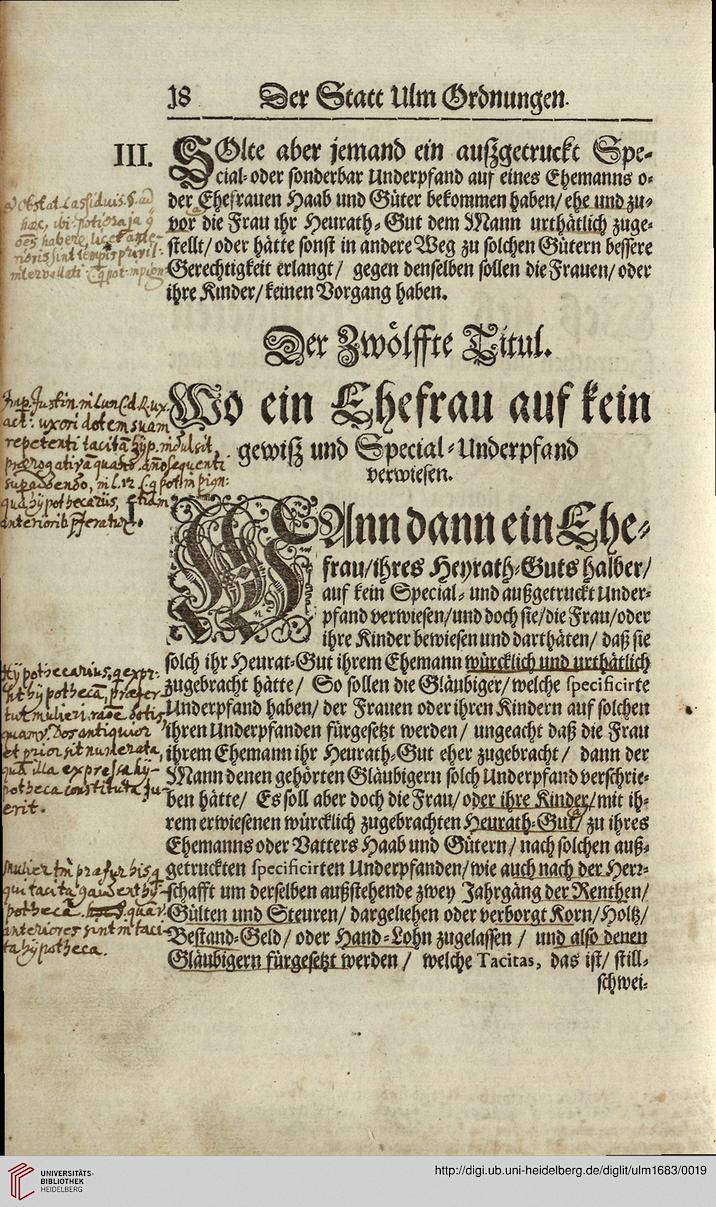 18 Der Statt Ulm Ordnungen.
III. SOlte aber jemand ein außgetruckt Spe-
cial- oder sonderbar Underpfand auf eines Ehemanns o-
der Ehefrauen Haab und Güter bekommen haben/ ehe und zu-
vor die Frau ihr Heurath-Gut dem Mann urthätlich zuge-
stellt/ oder hätte sonst in andere Weg zu solchen Gütern bessere
Gerechtigkeit erlangt/ gegen denselben sollen die Frauen/ oder
ihre Kinder/ keinen Vorgang haben.
Der Zwölffte Titul.
Wo ein Ehefrau auf kein
gewiß und Special-Underpfand
verwiesen.
WAnn dann ein Ehe-
frau/ ihres Heyrath-Guts halber/
auf kein Special- und außgetruckt Under-
pfand verwiesen/ und doch sie/ die Frau/ oder
ihre Kinder bewiesen und darthäten/ daß sie
solch ihr Heurat-Gut ihrem Ehemann würcklich und urthätlich
zugebracht hätte/ So sollen die Gläubiger/ welche specificirte
Underpfand haben/ der Frauen oder ihren Kindern auf solchen
ihren Underpfanden fürgesetzt werden/ ungeacht daß die Frau
ihrem Ehemann ihr Heurath-Gut eher zugebracht/ dann der
Mann denen gehörten Gläubigern solch Underpfand verschrie-
ben hätte/ Es soll aber doch die Frau/ oder ihre Kinder/ mit ih-
rem erwiesenen würcklich zugebrachten Heurath-Gut/ zu ihres
Ehemanns oder Vatters Haab und Gütern/ nach solchen auß-
getruckten specificirten Underpfanden/ wie auch nach der Herr-
schafft um derselben außstehende zwey Jahrgäng der Renthen/
Gülten und Steuren/ dargeliehen oder verborgt Korn/ Holtz/
Bestand-Geld/ oder Hand-Lohn zugelassen/ und also denen
Gläubigern fürgesetzt werden/ welche Tacitas, das ist/ still-
schwei-
repetenti tacitā hyp. indulsit,
anteriorib
et prior sit numerata,
quā illa expressa hy-
potheca constituta fu-
erit.
anteriores sint in taci-
ta hypotheca.
UNIVERSITÄTS-
BIBLIOTHEK
HEIDELBERG
http://digi.ub.uni-heidelberg.de/diglit/ulm1683/0019